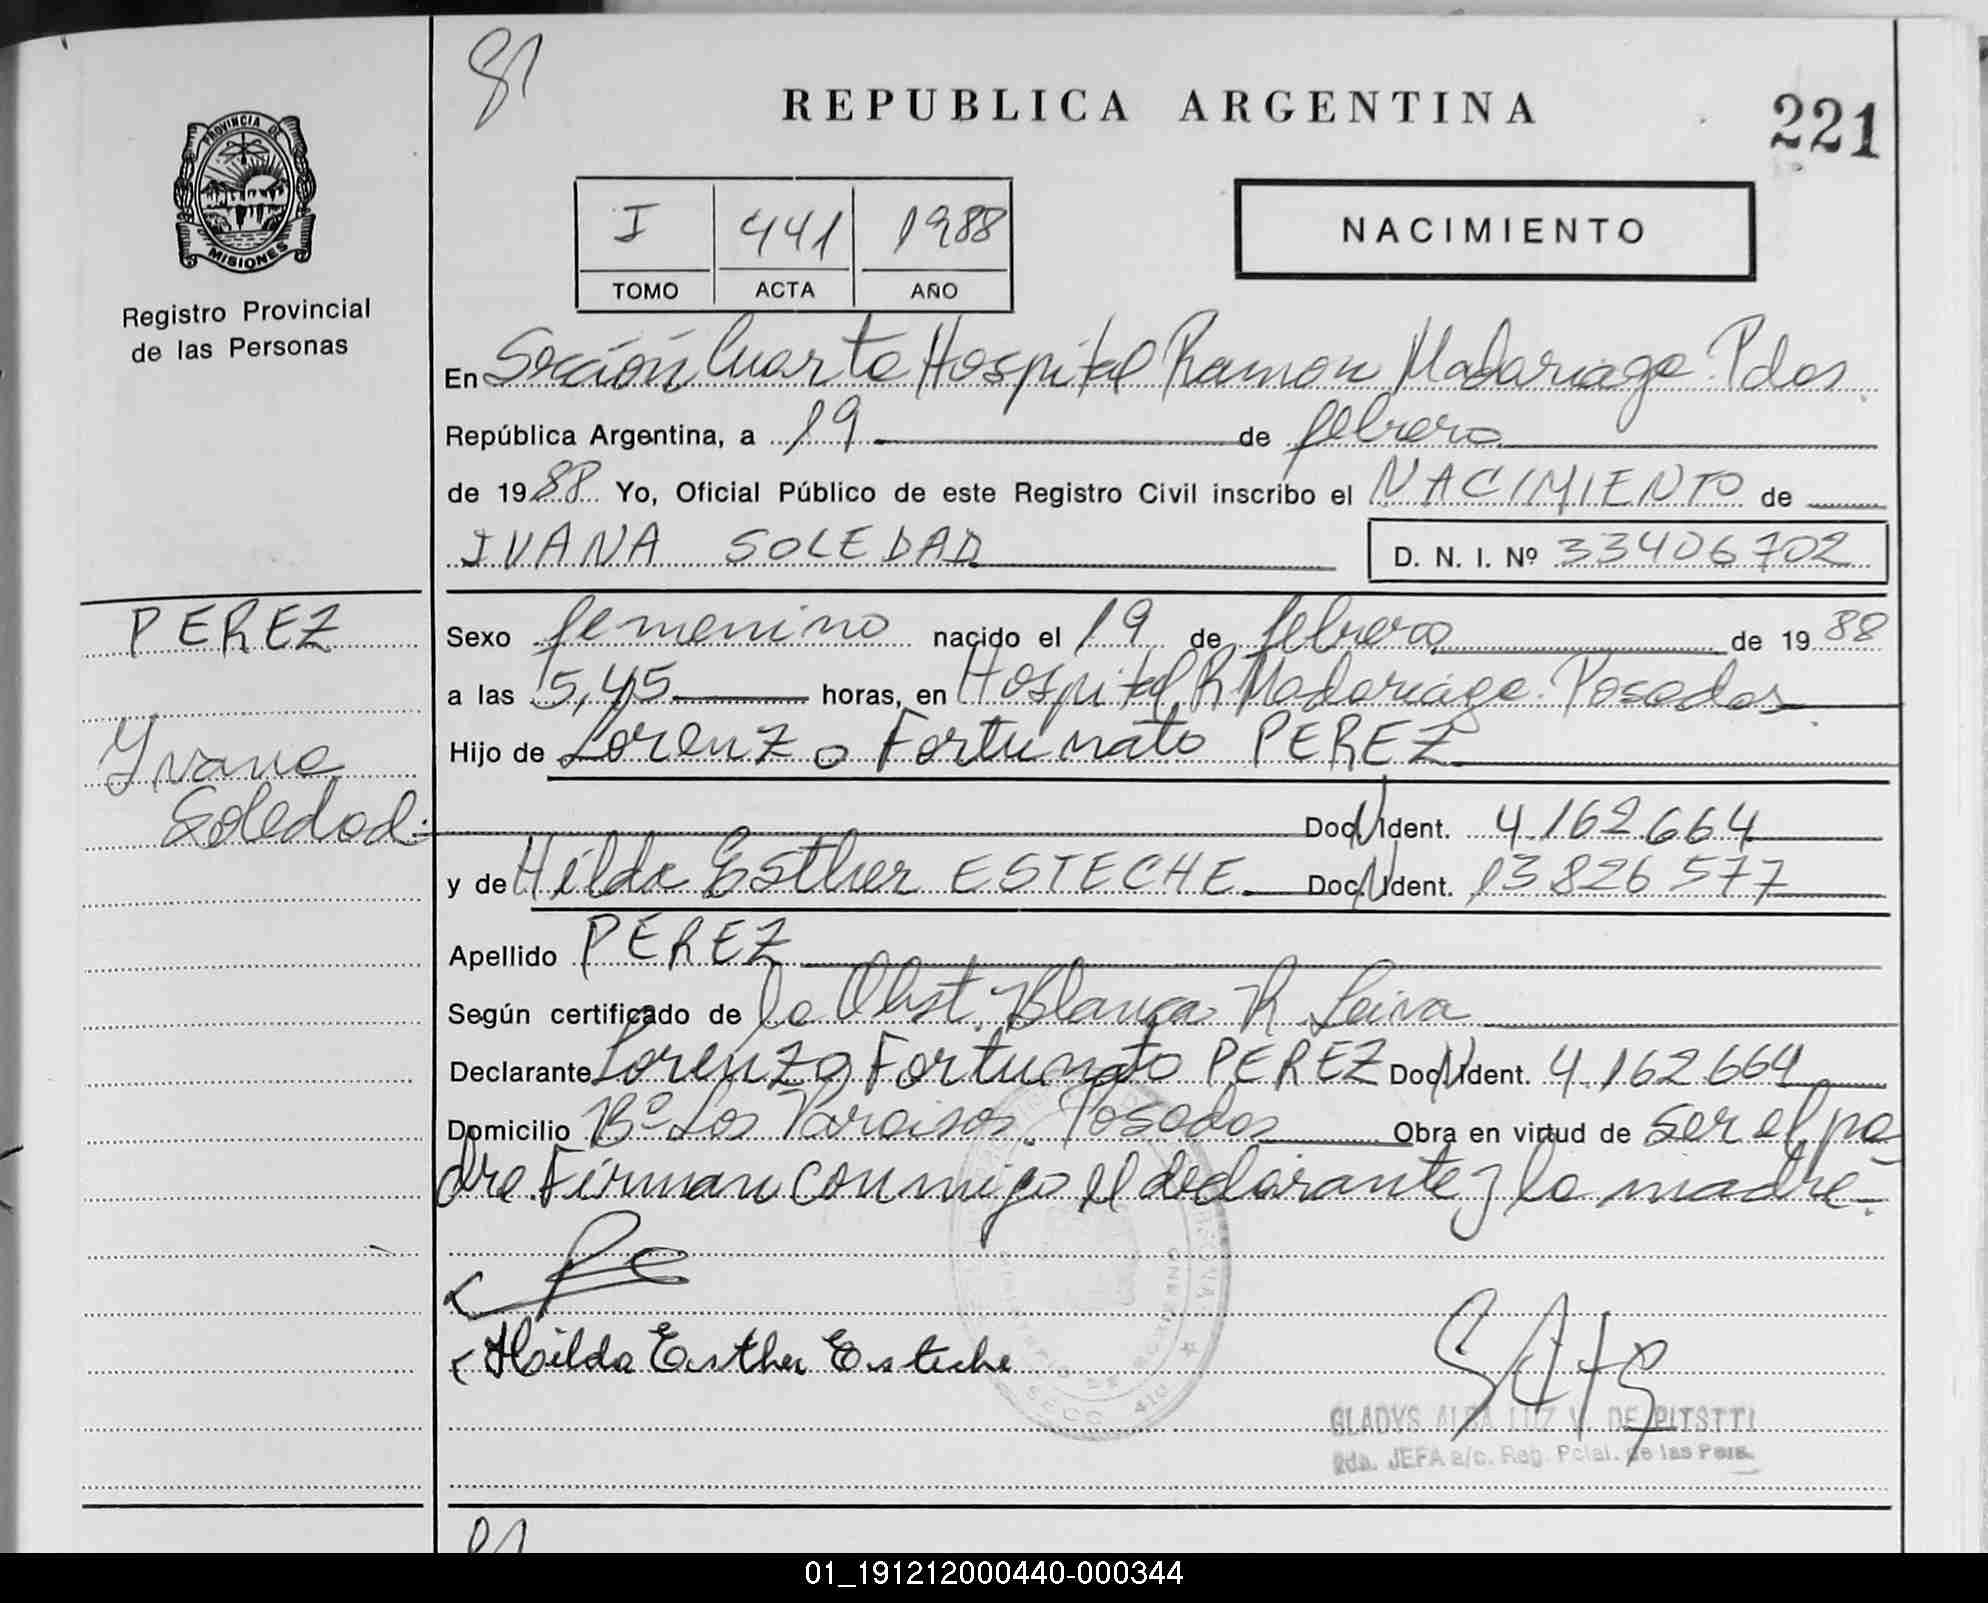 81
REPUBLICA ARGENTINA
221
PROVINCIA DE
MISIONES
Registro Provincial
de las Personas
I 441 1988
TOMO ACTA AÑO
NACIMIENTO
En Sección Cuarta Hospital Ramon Madariaga. Pdas.
República Argentina, a 19 de febrero
de 1988 Yo, Oficial Público de este Registro Civil inscribo el NACIMIENTO de
IVANA SOLEDAD
D. N. I. Nº 33406702
PEREZ
Ivana
Soledad.
Sexo femenino nacido el 19 de febrero de 1988
a las 5,45 horas, en Hospital R Madariaga. Posadas
Hijo de Lorenzo Fortunato PEREZ
Doc. Ident. 4.162.664
y de Hilda Esther ESTECHE Doc. Ident. 13 826 577
Apellido PEREZ
Según certificado de la Obst. Blanca R. Leiva
Declarante Lorenzo Fortunato PEREZ Doc. Ident. 4.162.664
Domicilio Bº Los Paraisos. Posadas Obra en virtud de ser el pa-
dre. Firman conmigo el declarante y la madre.
Hilda Esther Esteche
GLADYS ALBA LUZ V. DE
2da. JEFA a/c. Reg. Pcial. de las Pers.
01_191212000440-000344